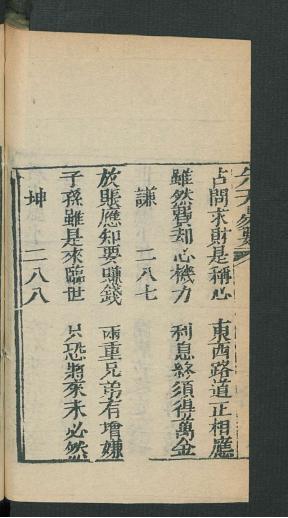 占問求財是稱心　東西路道正相應
雖然費却心機力　利息終須得萬金
謙　二八七
放賬應知要賺錢　兩重兄弟有增嫌
子孫雖是來臨世　只恐將來未必然
坤　二八八